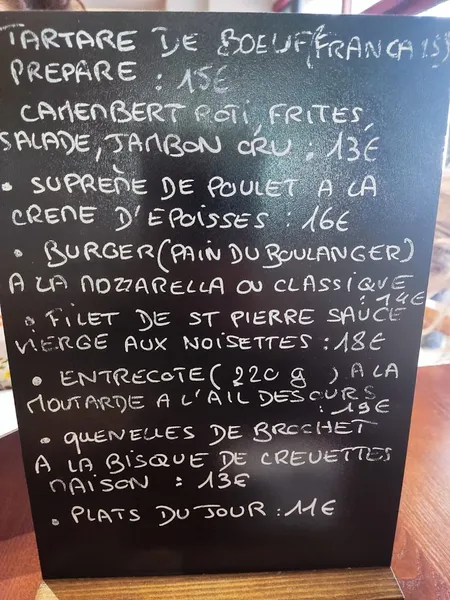 TARTARE DE BOEUF(FRANCAIS)
PREPARE : 15€
CAMEMBERT ROTI, FRITES,
SALADE, JAMBON CRU : 13€
• SUPREME DE POULET A LA
CREME D'EPOISSES : 16€
• BURGER (PAIN DU BOULANGER)
A LA MOZZARELLA OU CLASSIQUE
: 14€
• FILET DE ST PIERRE SAUCE
VIERGE AUX NOISETTES : 18€
• ENTRECOTE ( 220 g ) A LA
MOUTARDE A L'AIL DES OURS
: 19€
• QUENELLES DE BROCHET
A LA BISQUE DE CREVETTES
MAISON : 13€
• PLATS DU JOUR : 11€